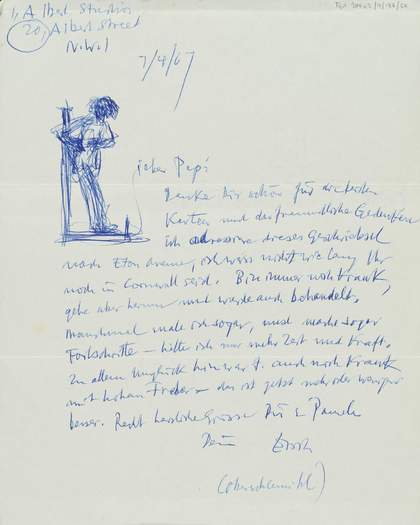 1, Albert Studios
20, Albert Street
N.W.1
7/9/67
Lieber Pepi
Danke Dir schön für die beiden
Karten und das freundliche Gedenken
ich adressiere dieses Geschreibsel
nach Eton Avenue, ich weiss nicht wie lang Ihr
noch in Cornwall seid. Bin immer noch krank,
gehe aber herum und werde auch behandelt,
manchmal male ich sogar, und mache sogar
Fortschritte – hätte ich nur mehr Zeit und Kraft.
Zu allem Unglück war auch noch krank
mit hohem Fieber – das ist jetzt mehr oder weniger
besser. Recht herzliche Grüsse Dir & Pamela
Dein